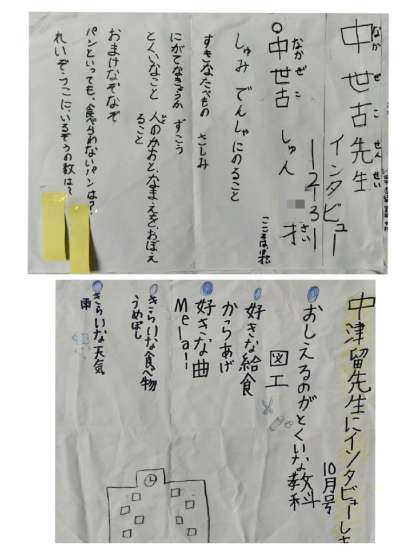 中世古先生
なかぜこせんせい
インタビュー
中世古 しゅん
なかぜこ
才
さい
しゅみ でんしゃにのること
すきなたべもの さしみ
にがてなきょうか ずこう
とくいなこと 人のかおと、なまえを、おぼえ
ること
おまけなぞなぞ
パンといっても、食べられないパンは?
れいぞうこにいるぞうの数は?
中津留先生にインタビューしま
10月号
おしえるのがとくいな教科
図工
好きな給食
からあげ
好きな曲
きらいな食べ物
うめぼし
きらいな天気
雨